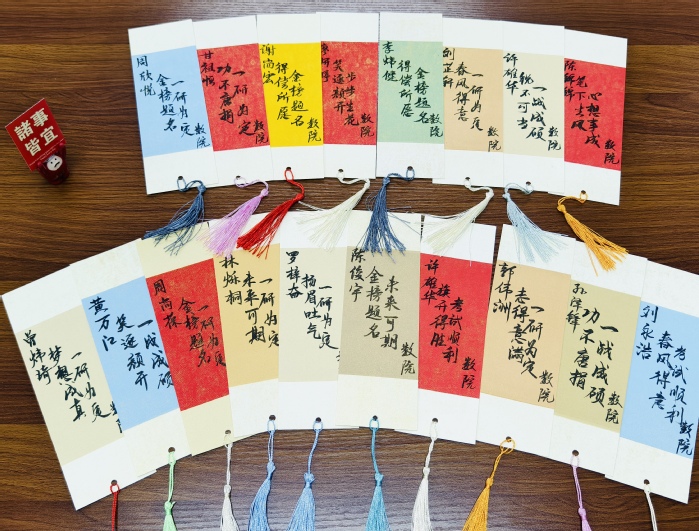 周欣悦
一研为定
金榜题名
数院
甘祖顺
一研为定
功不唐捐
数院
谢尚云
金榜题名
得偿所愿
数院
步步生花
笑逐颜开
数院
李炜健
金榜题名
得偿所愿
数院
刘芷轩
一研为定
春风得意
数院
许雄华
一战成硕
锐不可当
数院
陈
心想事成
笔下生风
数院
諸事
皆宜
曾炜琦
一研为定
梦想成真
数院
黄万江
一战成硕
笑逐颜开
数院
周尚
一研为定
金榜题名
数院
林烁桐
一研为定
未来可期
数院
罗梓奋
一研为定
扬眉吐气
数院
陈俊宇
未来可期
金榜题名
数院
许雄华
考试顺利
旗开得胜
数院
郭伟洲
一研为定
志得意满
数院
一战成硕
功不唐捐
数院
刘泉浩
考试顺利
春风得意
数院